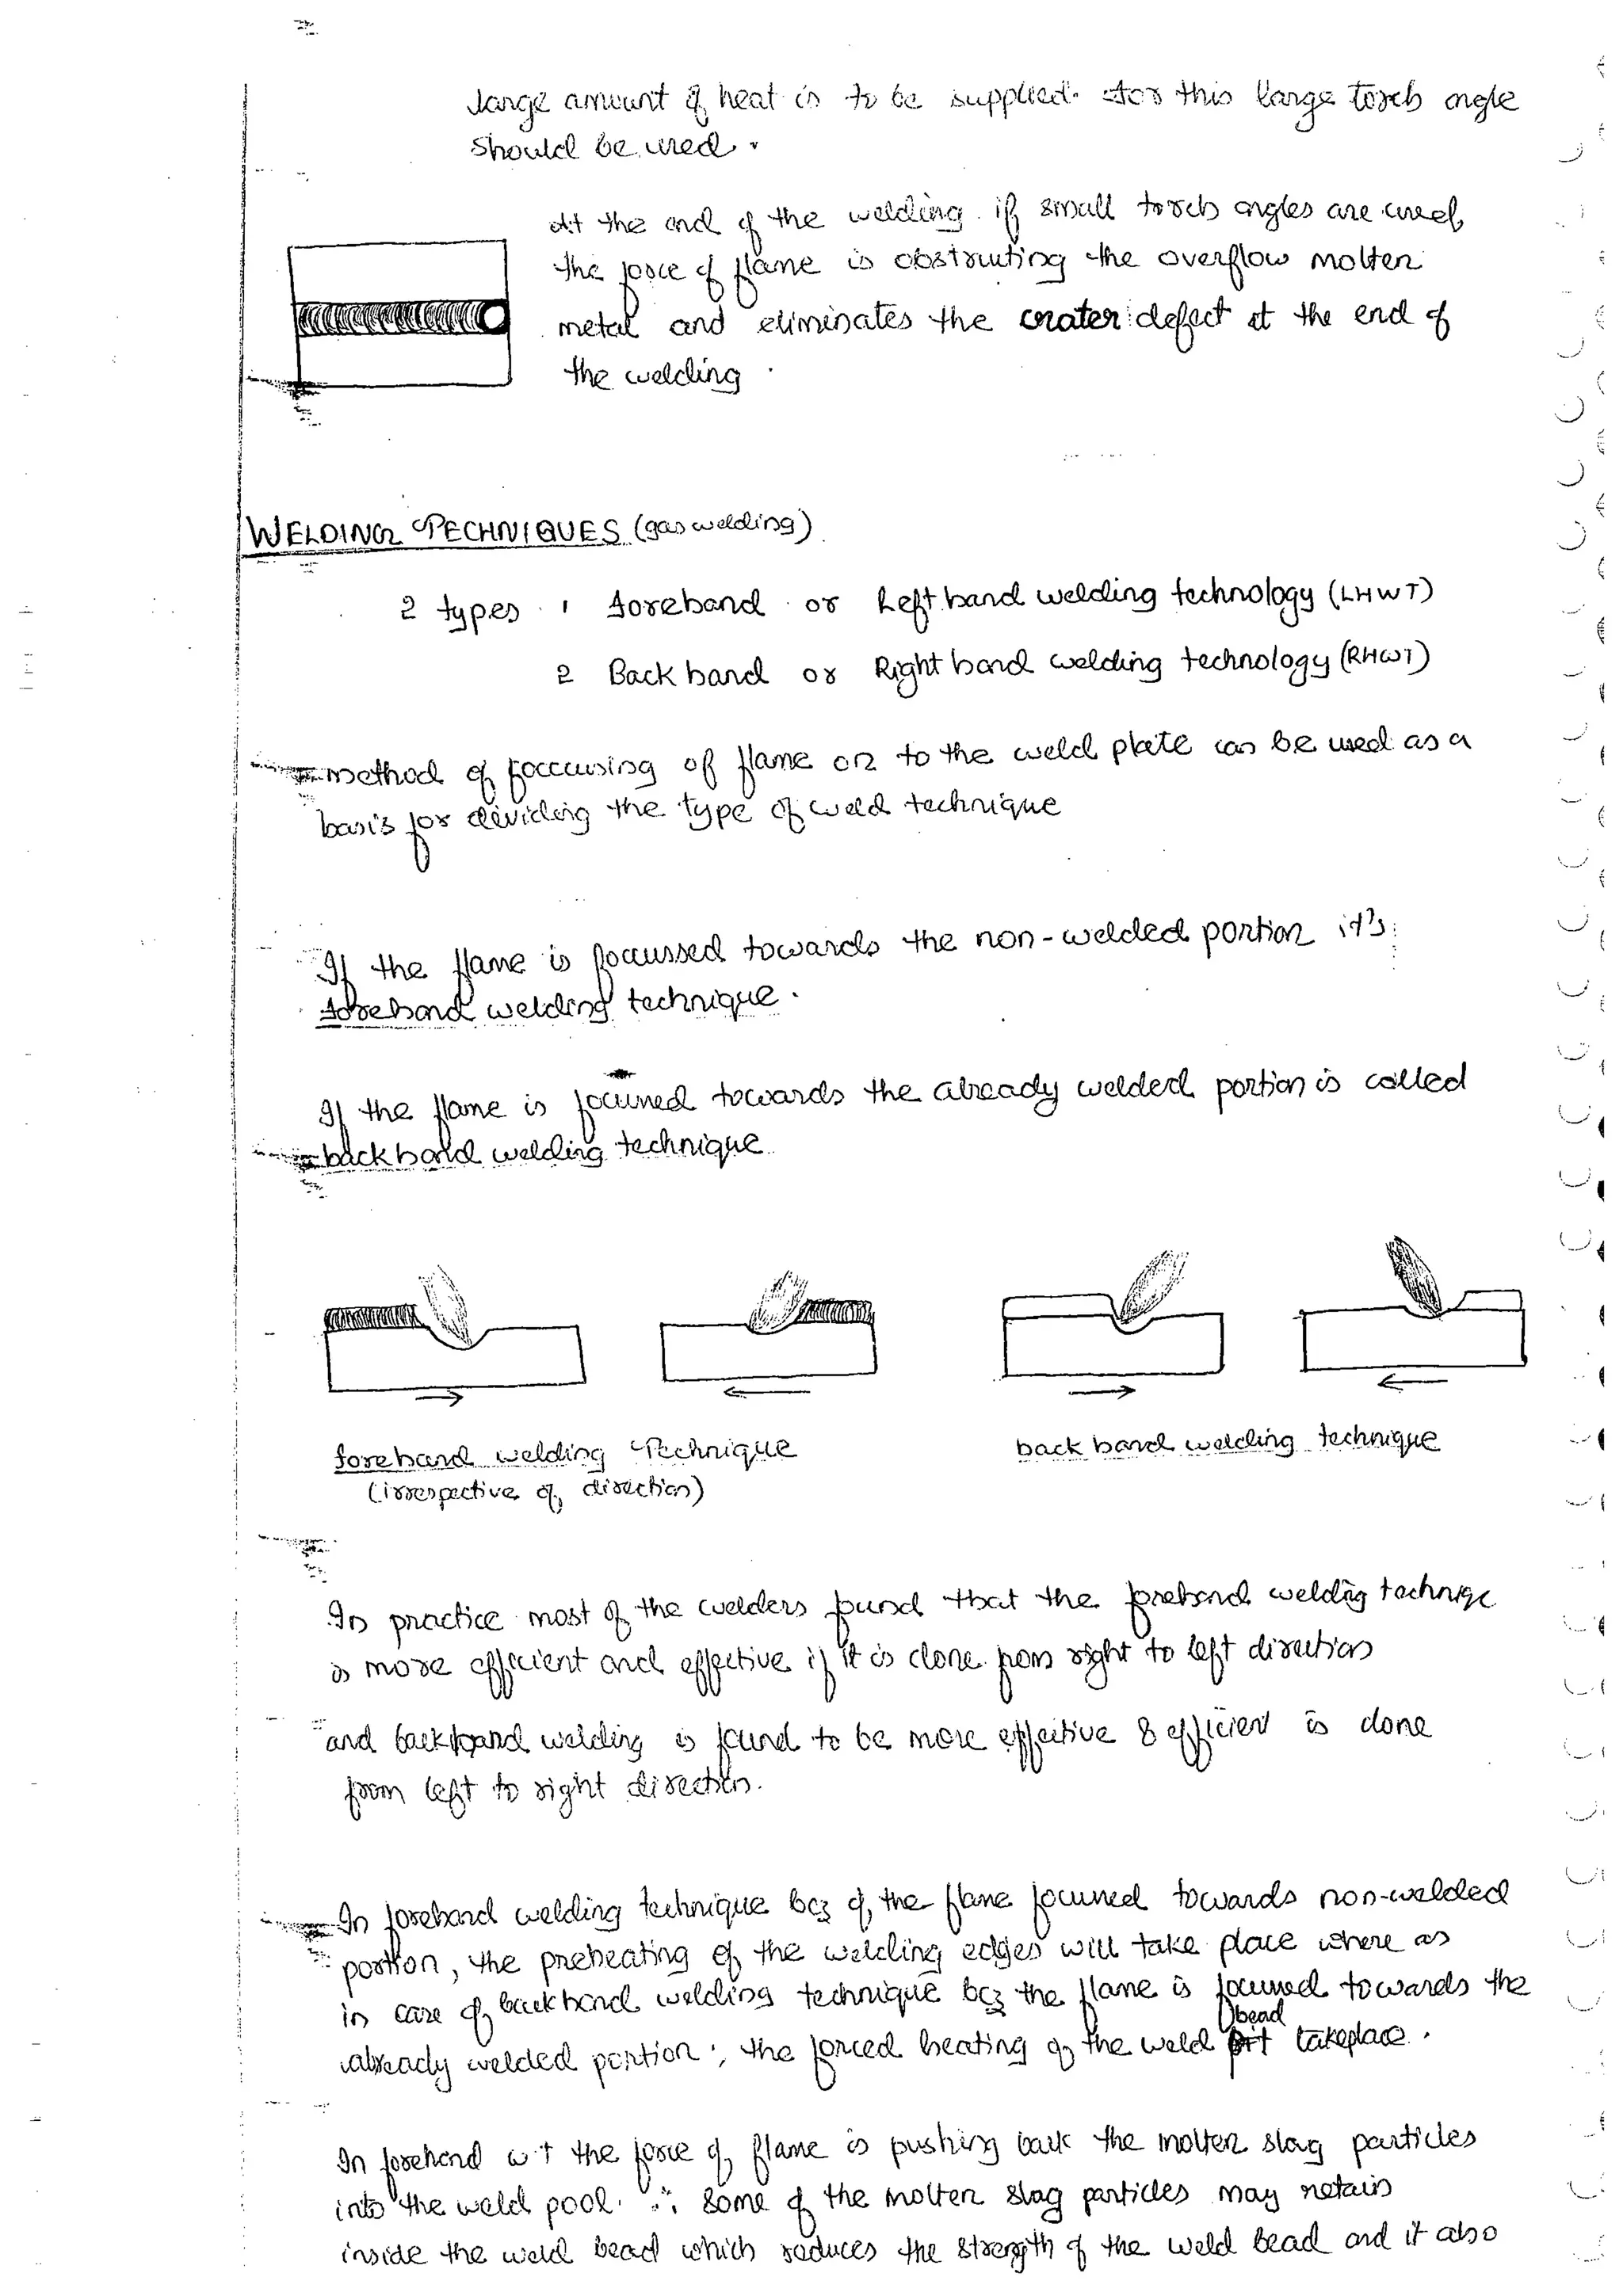 large amount of heat is to be supplied. For this large torch angle
should be used.
At the end of the welding if small torch angles are used,
the force of flame is obstructing the overflow molten
metal and eliminates the crater defect at the end of
the welding
WELDING TECHNIQUES (gas welding)
2 types 1 forehand or Left hand welding technology (LHWT)
2 Back hand or Right hand welding technology (RHWT)
method of foccusing of flame on to the weld plate can be used as a
basis for dividing the type of weld technique
If the flame is focussed towards the non-welded portion it's
forehand welding technique.
If the flame is focussed towards the already welded portion is called
back hand welding technique
forehand welding Technique
(irrespective of direction)
back hand welding technique
In practice most of the welders found that the forehand welding technique
is more efficient and effective if it is done from right to left direction
and backhand welding is found to be more effective & efficient is done
from left to right direction.
In forehand welding technique bcz of the flame focussed towards non-welded
portion, the preheating of the welding edges will take place where as
in case of backhand welding technique bcz the flame is focussed towards the
already welded portion, the forced heating of the weld bead takeplace.
In forehand w T the force of flame is pushing back the molten slag particles
into the weld pool. ∴ Some of the molten slag particles may retain
inside the weld bead which reduces the strength of the weld bead and it also